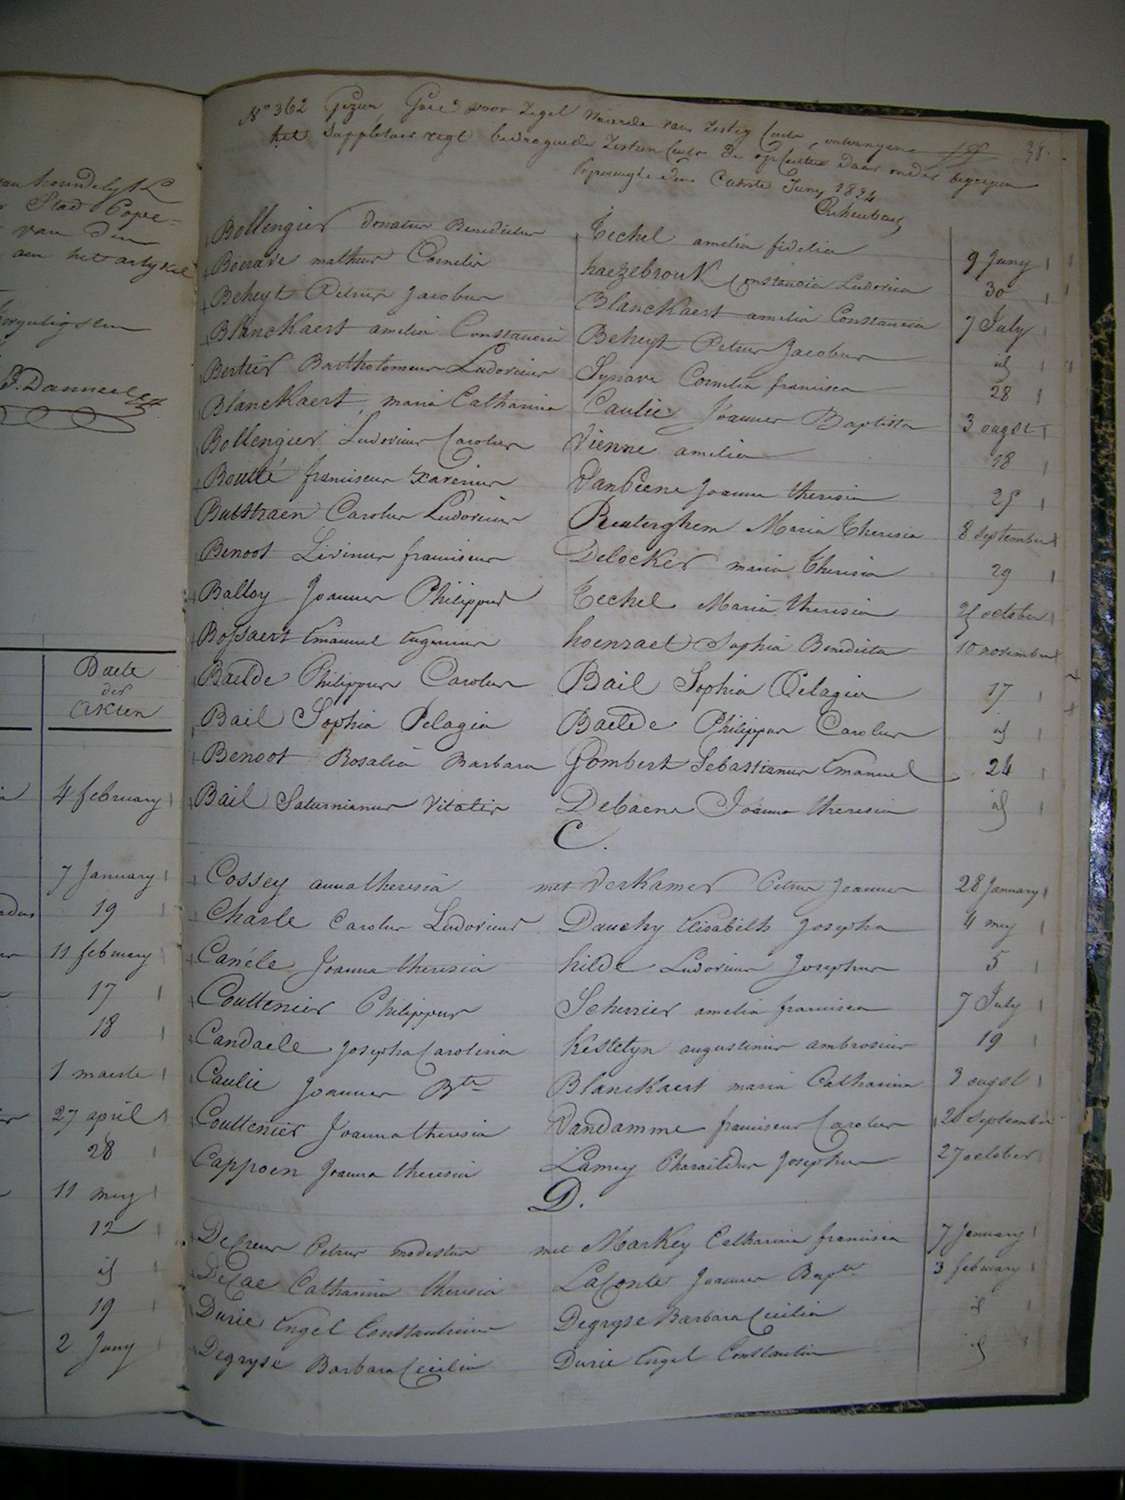 vanhoudelyk
Stad Pope-
van den
aen het artykel
J. Danneel
Daete
der
Akten
4 february
7 January
19
11 february
17
18
1 maerte
27 april
28
11 mey
12
id
19
2 Juny
N° 362 Gezien voor Zegel Waerde van Zestig Cents ontvangene
het Suppletoir regt bedraegende Zestien Cents de opCenten daer onder begrepen
Poperinghe den Eersten Juny 1824
38.
Bollengier Donatus Benedictus Techel amelia fidelia 9 Juny
Boerave matheus Cornelis haezebrouk Constancia Ludovica 30
Beheyt Petrus Jacobus Blanckaert amelia Constancia 7 July
Blanckaert amelia Constancia Beheyt Petrus Jacobus id
Bertier Bartholomeus Ludovicus Synave Cornelia francisca 28
Blanckaert maria Catharina Caulie Joannes Baptista 3 augst
Bollengier Ludovicus Carolus Vienne amelia 18
Boutté franciscus Xaverius Vanbiene Joanna theresia 25
Butstraen Carolus Ludovicus Reuterghem Maria Theresia 8 september
Benoot Livinus franciscus Delocker maria Theresia 29
Balloy Joannes Philippus Techel Maria theresia 25 october
Bossaert Emanuel Eugenius hoenraet Sophia Benedicta 10 november
Baelde Philippus Carolus Bail Sophia Pelagia 17
Bail Sophia Pelagia Baelde Philippus Carolus id
Benoot Rosalia Barbara Gombert Sebastianus Emanuel 24
Bail Saturnianus Vitalis Debaene Joanna theresia id
C.
Cossey anna theresia met Verkamer Petrus Joannes 28 January
Charle Carolus Ludovicus Dauchy Elisabeth Josepha 4 mey
Canéle Joanna theresia hilde Ludovicus Josephus 5
Couttenier Philippus Scherrier amelia francisca 7 July
Candaele Josepha Carolina Kestelyn augustinus ambrosius 19
Caulie Joannes Bte Blanckaert maria Catharina 3 augst
Couttenier Joanna theresia Vandamme franciscus Carolus 20 September
Cappoen Joanna theresia Lamey Pharaildus Josephus 27 october
D.
Decreus Petrus modestus met Markey Catharina francisca 7 January
DeCae Catharina theresia LaConte Joannes Bapte 3 february
Durie Engel Constantinus Degryse Barbara Cecilia id
Degryse Barbara Cecilia Durie Engel Constantin id